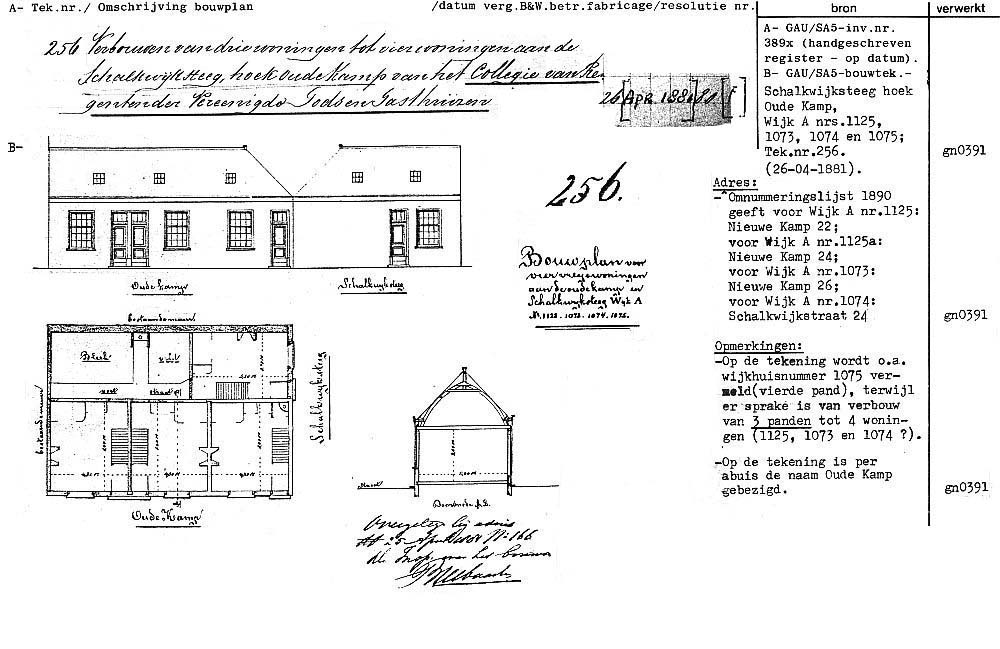 A- Tek.nr./ Omschrijving bouwplan /datum verg.B&W.betr.fabricage/resolutie nr.
bron
verwerkt
256 Verbouwen van drie woningen tot vier woningen aan de
Schalkwijksteeg, hoek Oude Kamp van het Collegie van Re
genten der Vereenigde Gods en Gasthuizen
26 [Apr. 1881]
A- GAU/SA5-inv.nr.
389x (handgeschreven
register - op datum).
B- GAU/SA5-bouwtek.-
Schalkwijksteeg hoek
Oude Kamp,
Wijk A nrs.1125,
1073, 1074 en 1075;
Tek.nr.256.
(26-04-1881).
gn0391
B-
Oude Kamp
Schalkwyksteeg
256.
Bouwplan voor
vier vrije woningen
aan de oude kamp en
Schalkwyksteeg Wyk A
No. 1125. 1073. 1074. 1075.
Adres:
-Omnummeringslijst 1890
geeft voor Wijk A nr.1125:
Nieuwe Kamp 22;
voor Wijk A nr.1125a:
Nieuwe Kamp 24;
voor Wijk A nr.1073:
Nieuwe Kamp 26;
voor Wijk A nr.1074:
Schalkwijkstraat 24
gn0391
bestaande muur
Bleek
bestaande muur
Schalkwyksteeg
Oude Kamp
Doorsnede A.B.
Opmerkingen:
-Op de tekening wordt o.a.
wijkhuisnummer 1075 ver-
meld(vierde pand), terwijl
er sprake is van verbouw
van 3 panden tot 4 wonin-
gen (1125, 1073 en 1074 ?).
-Op de tekening is per
abuis de naam Oude Kamp
gebezigd.
gn0391
Overgelegd bij advies
No 166